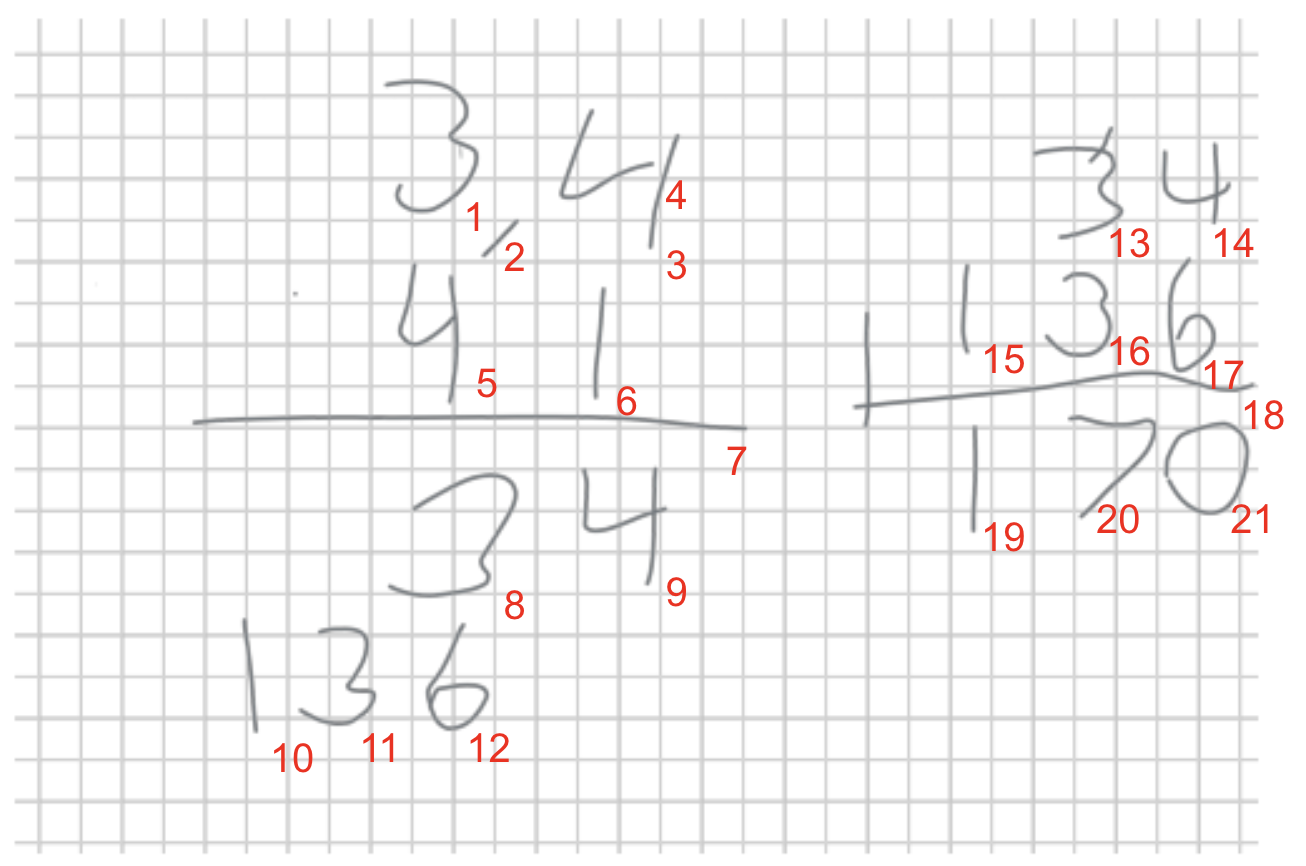 3,4
1 2 4
3
41
5 6
7
34
8 9
136
10 11 12
34
13 14
+136
15 16 17
18
170
19 20 21